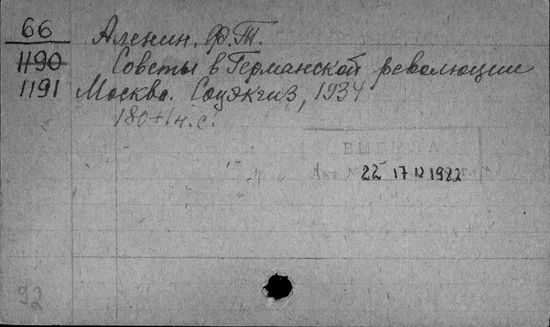 66
Аленин. Ф.Т.
1190 Советы в Германской революции
1191 Москва. Соцэкгиз, 1934
180+1н.с.
Акт № 22 17 IX 1982
92